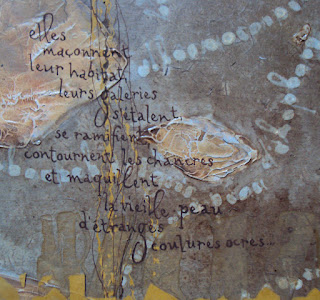 elles
maçonnent
leur habitat,
leurs galeries
s'étalent,
se ramifient,
contournent les chancres
et maquillent
la vieille peau
d'étranges
coulures ocres...